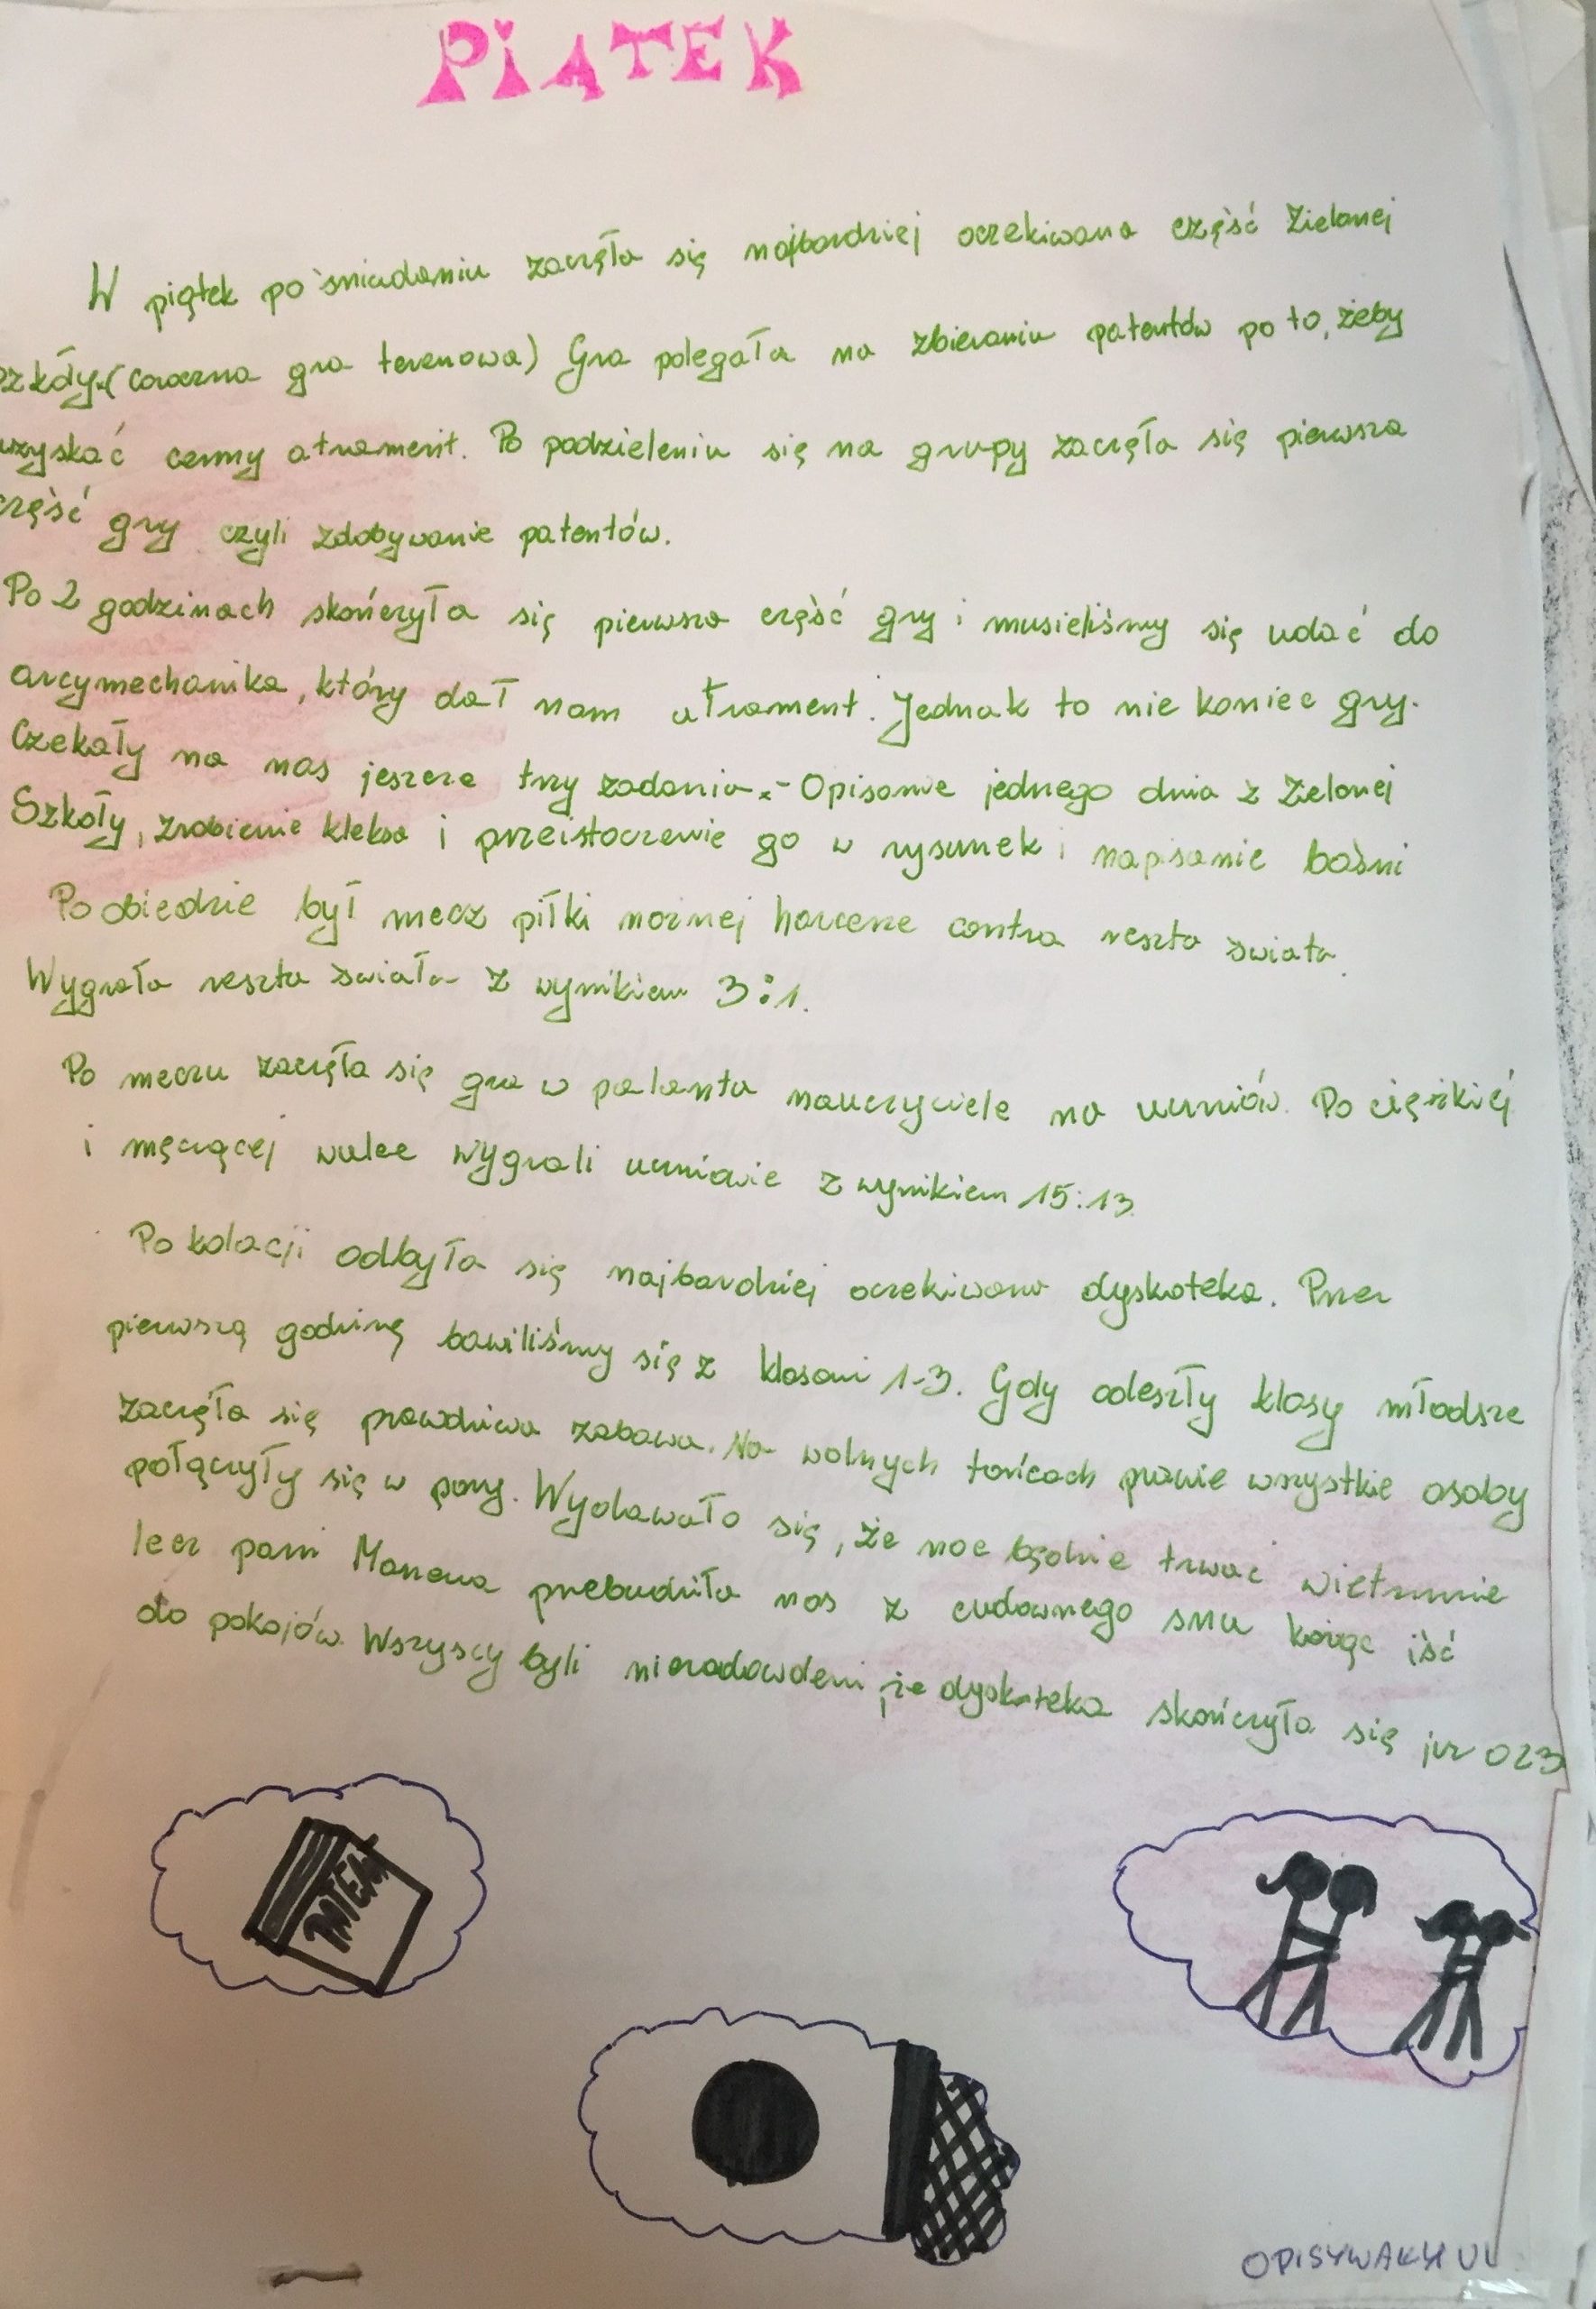 PIĄTEK
W piątek po śniadaniu zaczęła się najbardziej oczekiwana część Zielonej
szkoły.(coroczna gra terenowa) Gra polegała na zbieraniu patentów po to, żeby
uzyskać czarny atrament. Po podzieleniu się na grupy zaczęła się pierwsza
część gry czyli zdobywanie patentów.
Po 2 godzinach skończyła się pierwsza część gry i musieliśmy się udać do
arcymechanika, który dał nam atrament. Jednak to nie koniec gry.
Czekały na nas jeszcze trzy zadania:- Opisanie jednego dnia z Zielonej
Szkoły, zrobienie kleksa i przeistoczenie go w rysunek i napisanie baśni
Po obiedzie był mecz piłki nożnej harcerze contra reszta świata.
Wygrała reszta świata z wynikiem 3:1.
Po meczu zaczęła się gra w palanta nauczyciele na uczniów. Po ciężkiej
i męczącej walce wygrali uczniowie z wynikiem 15:13
Po kolacji odbyła się najbardziej oczekiwana dyskoteka. Przez
pierwszą godzinę bawiliśmy się z klasami 1-3. Gdy odeszły klasy młodsze
zaczęła się prawdziwa zabawa. Na wolnych tańcach prawie wszystkie osoby
połączyły się w pary. Wydawało się, że noc będzie trwać wietrznie
lecz pani przebudziła nas z cudownego snu każąc iść
do pokojów. Wszyscy byli niezadowoleni, że dyskoteka skończyła się już o 23
PATENT